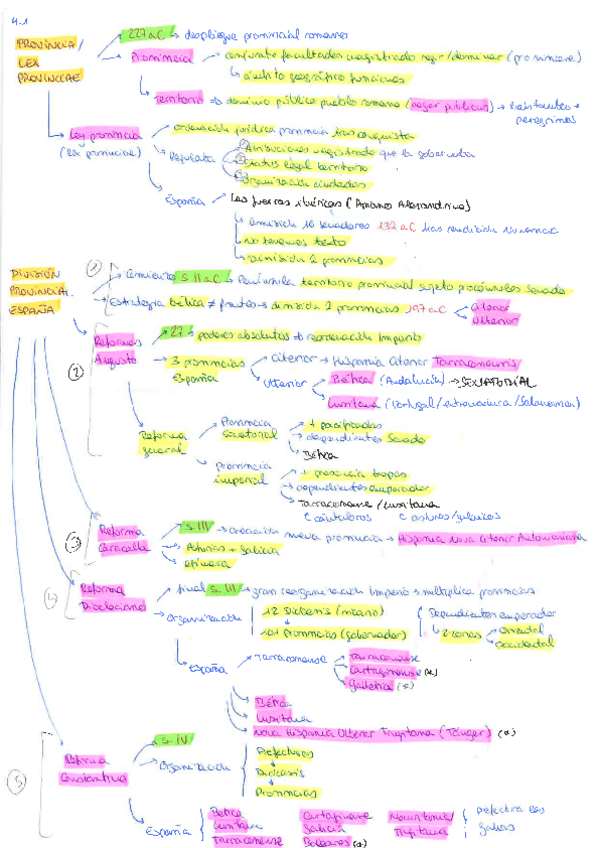 4.1
PROVINCIA/
LEX
PROVINCIAE
227 a.C → despliegue provincial romanos
Provincia → conjunto facultades magistrado regir/dominar (pro vincere)
↳ ámbito geográfico funciones
Territorio → dominio público pueblo romano (ager publicus) → habitantes →
peregrinos
Ley provincia
(lex provinciae)
ordenación jurídica provincia tras conquista
Regulaba
① Atribuciones magistrado que la gobernaba
② Status legal territorio
③ Organización ciudades
España → Las guerras ibéricas (Apiano Alejandrino)
comisión 10 senadores 132 a.C tras rendición Numancia
no tenemos texto
división 2 provincias
DIVISIÓN
PROVINCIAL
ESPAÑA
① Comienzos S. II a.C → Península territorio provincial sujeto procónsules Senado
Estrategia bélica ≠ frentes → división 2 provincias 197 a.C
Citerior
Ulterior
②
Reformas
Augusto
27 → poderes absolutos → reordenación Imperio
3 provincias
España
Citerior → Hispania Citerior Tarraconensis
Ulterior
Bética (Andalucía) → SENATORIAL
Lusitania (Portugal/extremadura/Salamanca)
Reforma
general
Provincia
senatorial
+ pacificadas
dependientes Senado
Bética
provincia
imperial
+ presencia tropas
dependientes emperador
Tarraconense / Lusitania
cántabros
astures/galaicos
③
Reforma
Caracalla
S. III → creación nueva provincia → Hispania Nova Citerior Antoniniana
Asturias + Galicia
efímera
④
Reforma
Diocleciano
final S. III → gran reorganización Imperio → multiplica provincias
Organización
12 Diócesis (vicario)
101 provincias (gobernador)
Dependientes emperador
2 zonas
Oriental
Occidental
España
Tarraconense
Tarraconense
Cartaginense (*)
Gallaecia (*)
Bética
Lusitania
Nova Hispania Ulterior Tingitana (Tánger) (*)
⑤
Reforma
Constantino
S. IV
Organización
Prefecturas
Diócesis
Provincias
España
Bética Cartaginense Mauritania
Lusitania Galicia Tingitana
Tarraconense Baleares (*)
prefectura las
Galias